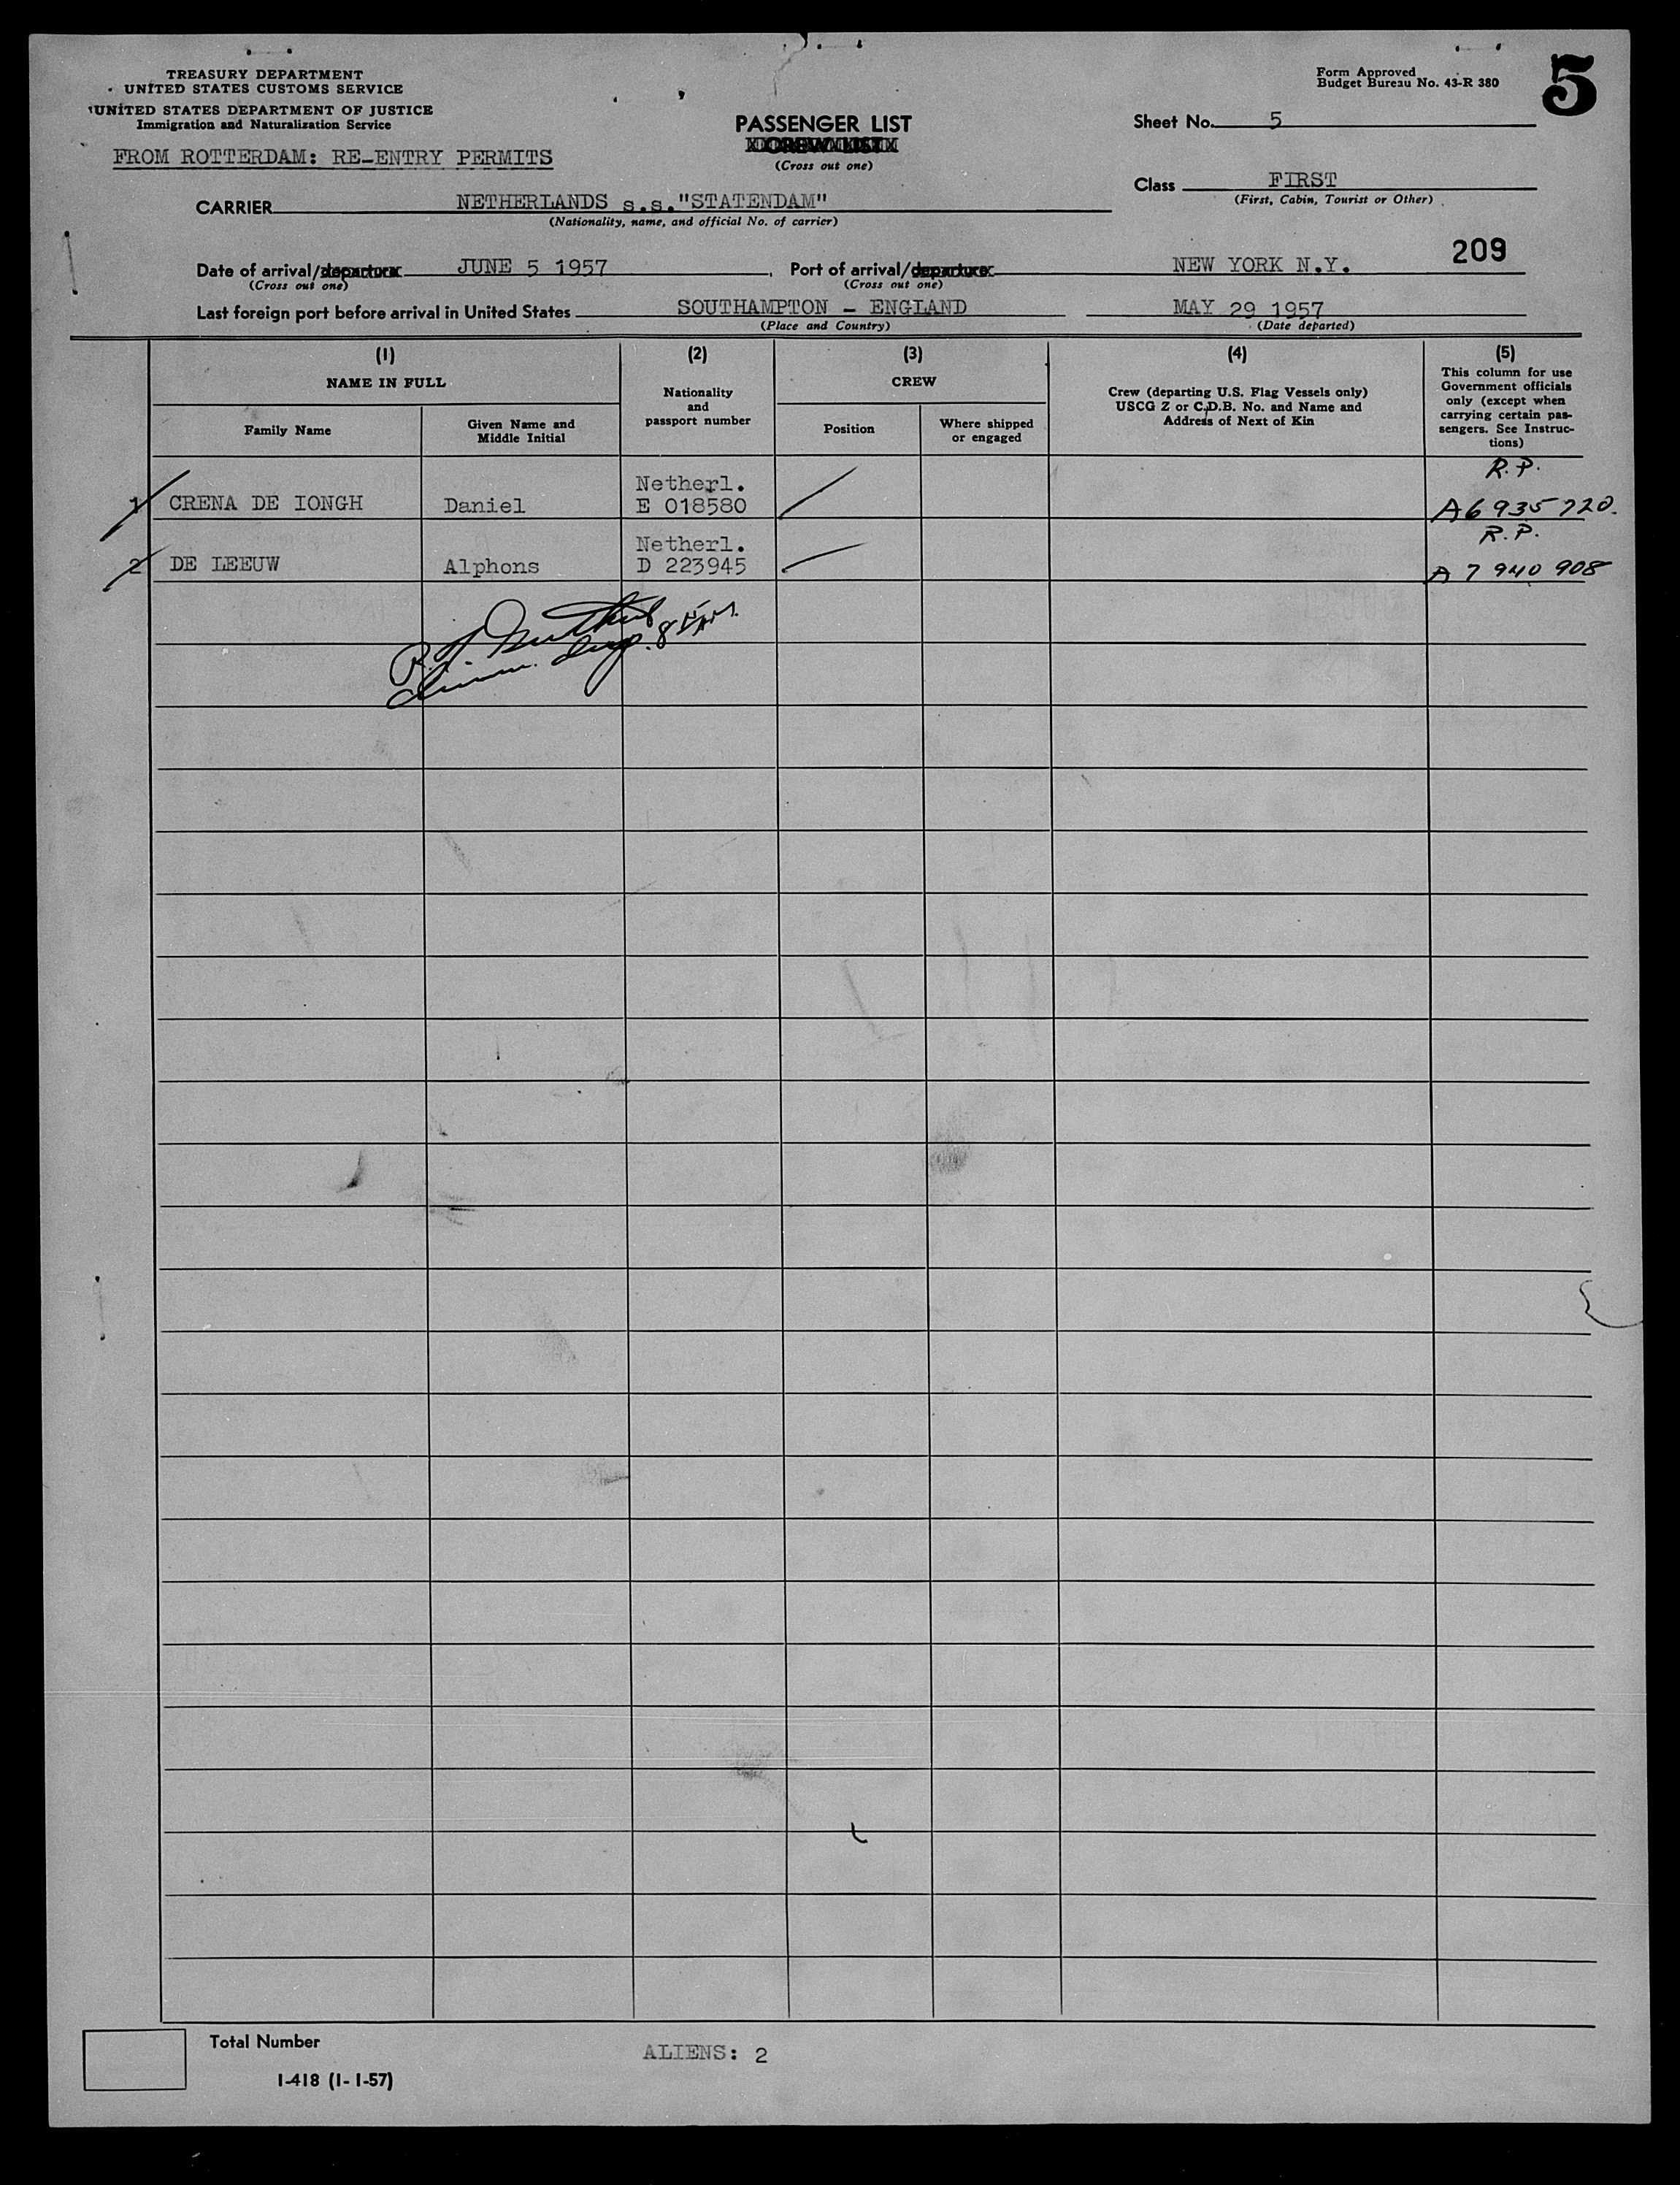 TREASURY DEPARTMENT
UNITED STATES CUSTOMS SERVICE
UNITED STATES DEPARTMENT OF JUSTICE
Immigration and Naturalization Service
FROM ROTTERDAM: RE-ENTRY PERMITS
PASSENGER LIST
CREW LIST
(Cross out one)
Form Approved
Budget Bureau No. 43-R 380
5
Sheet No. 5
Class FIRST
(First, Cabin, Tourist or Other)
CARRIER NETHERLANDS s.s."STATENDAM"
(Nationality, name, and official No. of carrier)
209
Date of arrival/departure JUNE 5 1957, Port of arrival/departure NEW YORK N.Y.
(Cross out one) (Cross out one)
Last foreign port before arrival in United States SOUTHAMPTON - ENGLAND MAY 29 1957
(Place and Country) (Date departed)
(1)
NAME IN FULL
Family Name
Given Name and
Middle Initial
(2)
Nationality
and
passport number
(3)
CREW
Position
Where shipped
or engaged
(4)
Crew (departing U.S. Flag Vessels only)
USCG Z or C.D.B. No. and Name and
Address of Next of Kin
(5)
This column for use
Government officials
only (except when
carrying certain pas-
sengers. See Instruc-
tions)
Netherl. R.P.
1 CRENA DE IONGH Daniel E 018580 A6 935 720.
Netherl. R.P.
2 DE LEEUW Alphons D 223945 A 7 940 908
Total Number
ALIENS: 2
I-418 (1-1-57)